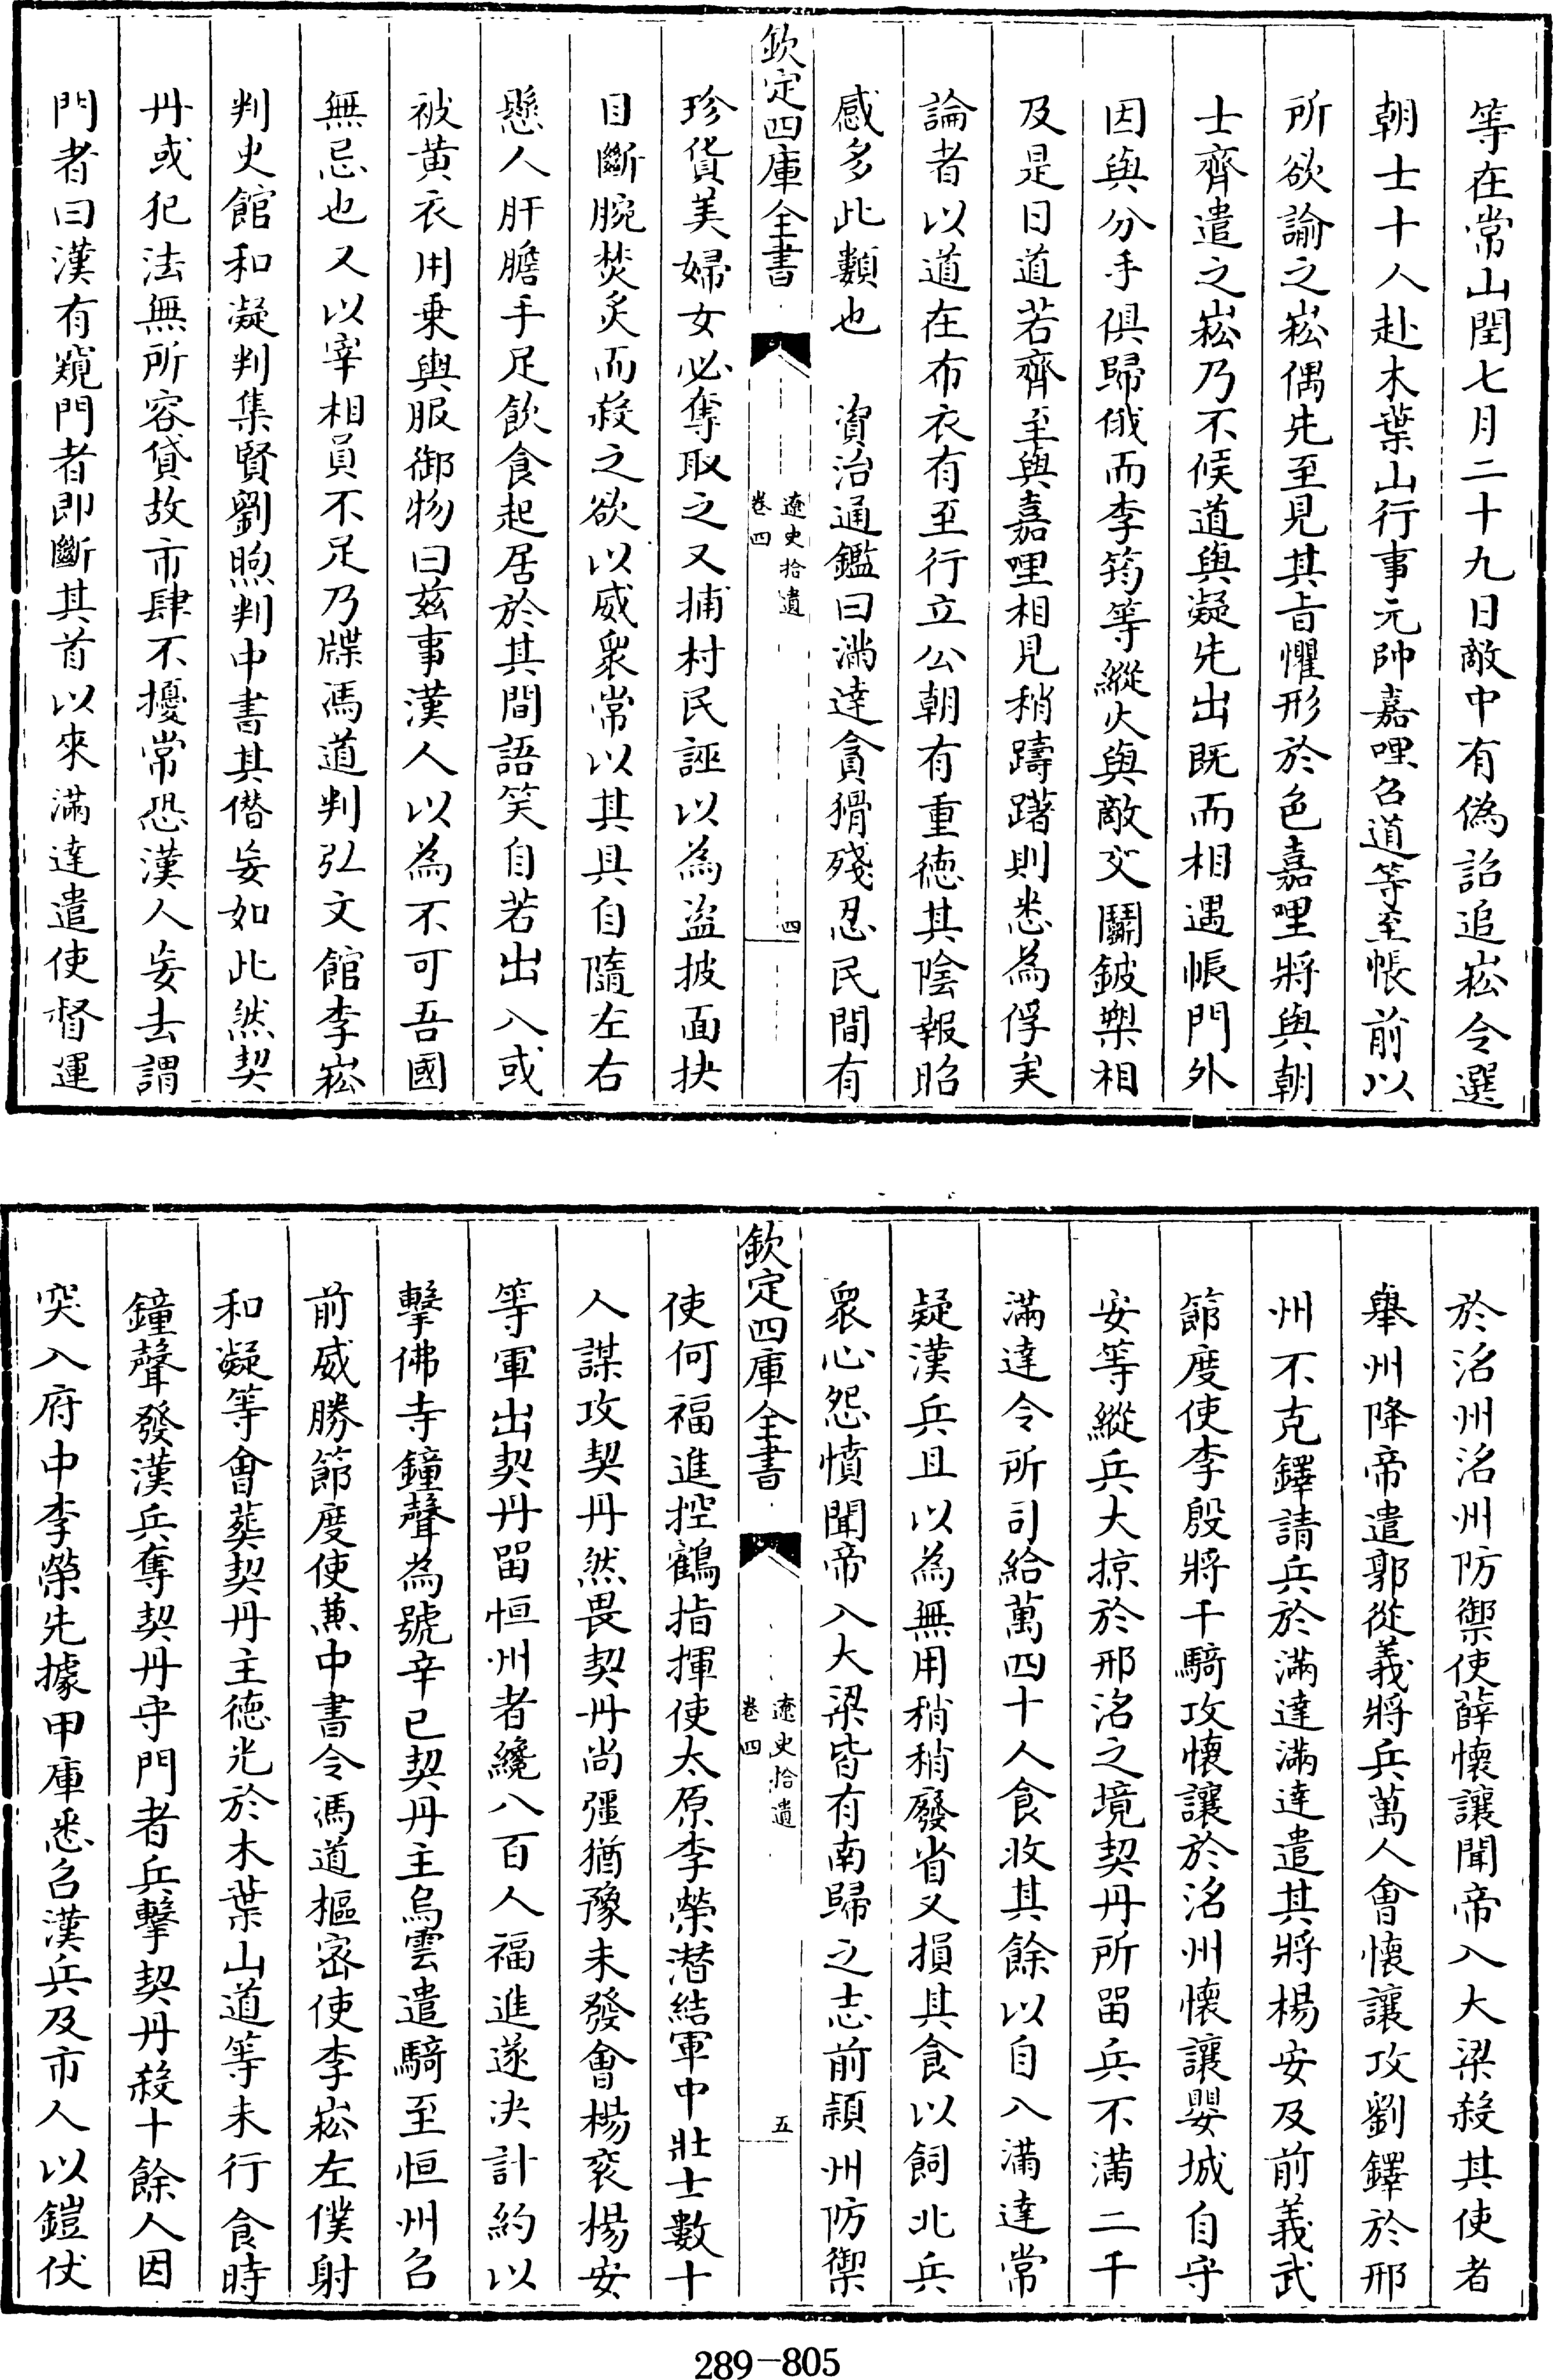 等在常山閏七月二十九日敵中有偽詔追崧令選
朝士十人赴木葉山行事元帥嘉哩召道等至帳前以
所欲諭之崧偶先至見其旨懼形於色嘉哩將與朝
士齊遣之崧乃不候道與凝先出既而相遇帳門外
因與分手俱歸俄而李筠等縱火與敵交鬭鈹槊相
及是日道若齊至與嘉哩相見稍躊躇則悉為俘矣
論者以道在布衣有至行立公朝有重徳其陰報昭
感多此類也　資治通鑑曰滿達貪猾殘忍民間有
欽定四庫全書
遼史拾遺
卷四
四
珍貨美婦女必奪取之又捕村民誣以為盜披面抉
目斷腕焚炙而殺之欲以威衆常以其具自隨左右
懸人肝膽手足飲食起居於其間語笑自若出入或
被黄衣用乗輿服御物曰兹事漢人以為不可吾國
無忌也又以宰相員不足乃牒馮道判弘文館李崧
判史館和凝判集賢劉煦判中書其僭妄如此然契
丹或犯法無所容貸故市肆不擾常恐漢人妄去謂
門者曰漢有窺門者即斷其首以來滿達遣使督運
於洺州洺州防禦使薛懷讓聞帝入大梁殺其使者
舉州降帝遣郭從義將兵萬人會懷讓攻劉鐸於邢
州不克鐸請兵於滿達滿達遣其將楊安及前義武
節度使李殷將千騎攻懷讓於洺州懷讓嬰城自守
安等縱兵大掠於邢洺之境契丹所留兵不滿二千
滿達令所司給萬四十人食收其餘以自入滿達常
疑漢兵且以為無用稍稍廢省又損其食以飼北兵
衆心怨憤聞帝入大梁皆有南歸之志前潁州防禦
欽定四庫全書
遼史拾遺
卷四
五
使何福進控鶴指揮使太原李榮潜結軍中壯士數十
人謀攻契丹然畏契丹尚彊猶豫未發會楊衮楊安
等軍出契丹留恒州者纔八百人福進遂决計約以
擊佛寺鐘聲為號辛巳契丹主烏雲遣騎至恒州召
前威勝節度使兼中書令馮道樞密使李崧左僕射
和凝等會葬契丹主徳光於木葉山道等未行食時
鐘聲發漢兵奪契丹守門者兵擊契丹殺十餘人因
突入府中李榮先據甲庫悉召漢兵及市人以鎧仗
289-805